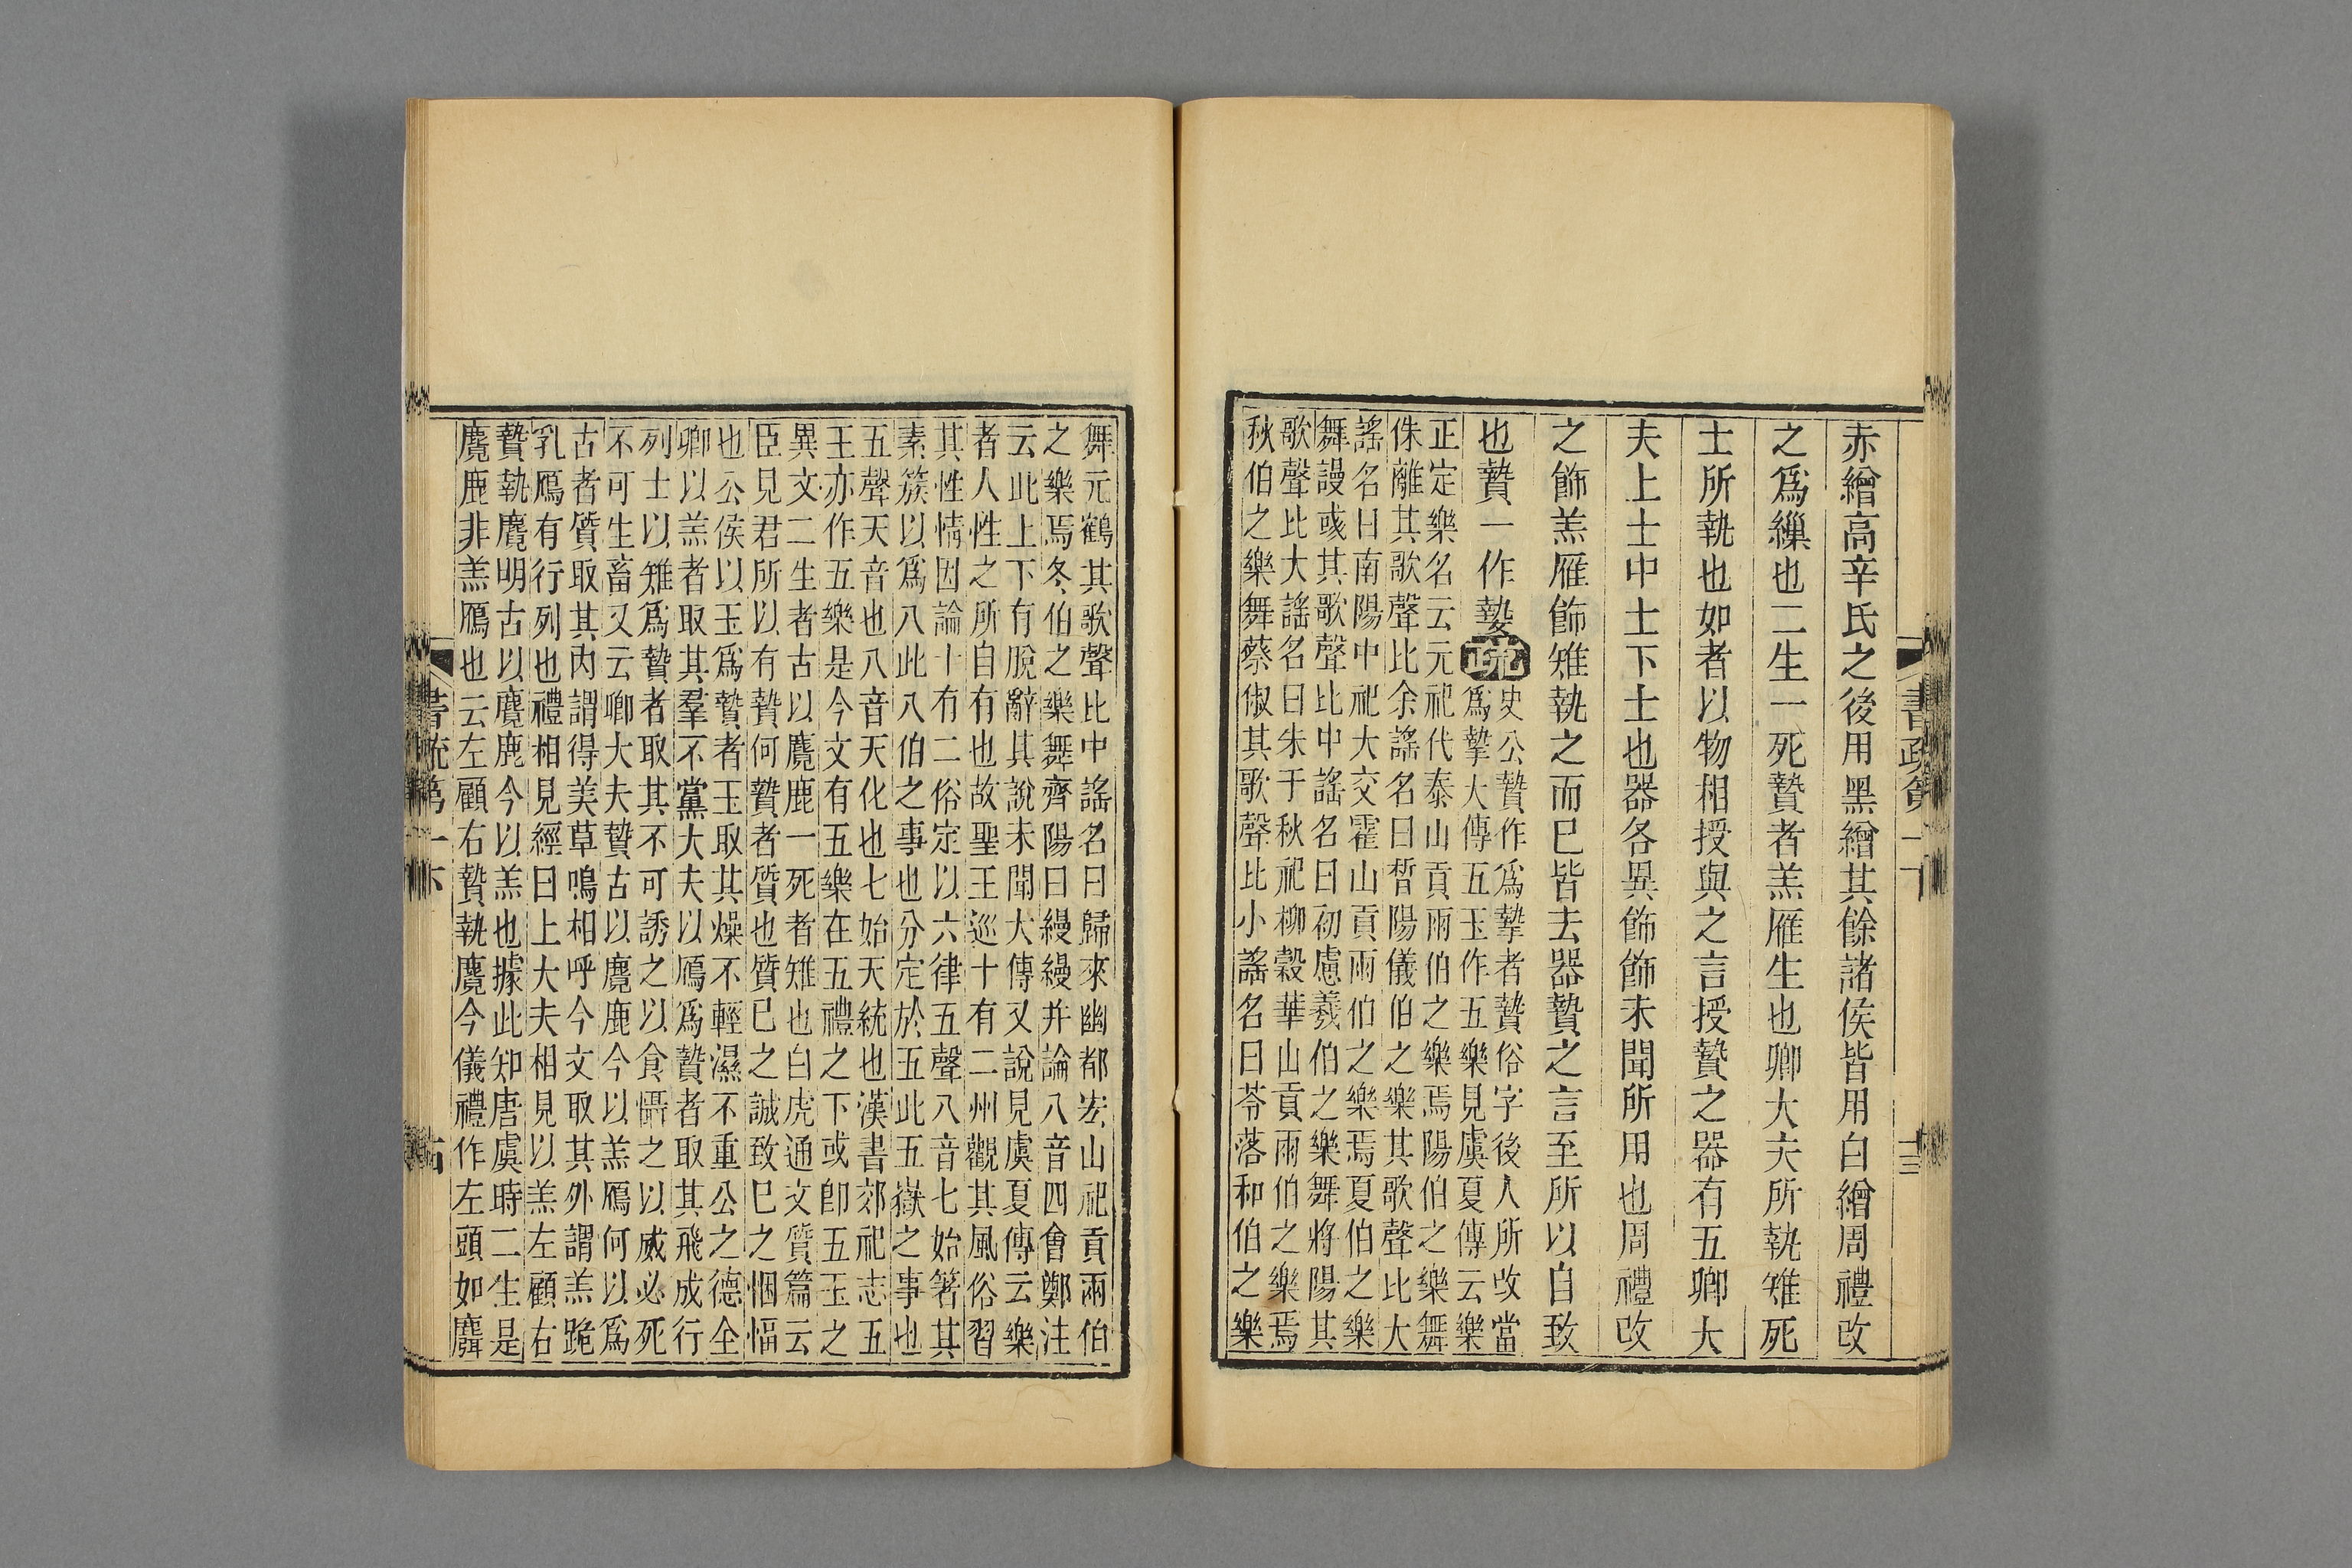 赤繒高辛氏之後用黑繒其餘諸侯皆用白繒周禮改
之爲繅也二生一死贄者羔雁生也卿大夫所執雉死
士所執也如者以物相授與之言授贄之器有五卿大
夫上士中士下士也器各異飾飾未聞所用也周禮改
之飾羔雁飾雉執之而已皆去器贄之言至所以自致
也贄一作摯疏
史公贄作爲摯者贄俗字後人所改當
爲摯大傳五玉作五樂見虞夏傳云樂
正定樂名云元祀代泰山貢兩伯之樂焉陽伯之樂舞
侏離其歌聲比余謠名曰晳陽儀伯之樂其歌聲比大
謠名曰南陽中祀大交霍山貢兩伯之樂焉夏伯之樂
舞謾彧其歌聲比中謠名曰初慮羲伯之樂舞將陽其
歌聲比大謠名曰朱于秋祀柳穀華山貢兩伯之樂焉
秋伯之樂舞蔡俶其歌聲比小謠名曰苓落和伯之樂
書疏第一下
十三
舞元鶴其歌聲比中謠名曰歸來幽都宏山祀貢兩伯
之樂焉冬伯之樂舞齊陽曰縵縵并論八音四會鄭注
云此上下有脫辭其說未聞大傳又說見虞夏傳云樂
者人性之所自有也故聖王巡十有二州觀其風俗習
其性情因論十有二俗定以六律五聲八音七始箸其
素簇以爲八此八伯之事也分定於五此五嶽之事也
五聲天音也八音天化也七始天統也漢書郊祀志五
玉亦作五樂是今文有五樂在五禮之下或卽五玉之
異文二生者古以麑鹿一死者雉也白虎通文質篇云
臣見君所以有贄何贄者質也質已之誠致已之悃愊
也公侯以玉爲贄者玉取其燥不輕濕不重公之德全
卿以羔者取其羣不黨大夫以鴈爲贄者取其飛成行
列士以雉爲贄者取其不可誘之以食懾之以威必死
不可生畜又云卿大夫贄古以麑鹿今以羔鴈何以爲
古者質取其內謂得美草鳴相呼今文取其外謂羔跪
乳鴈有行列也禮相見經曰上大夫相見以羔左顧右
贄執麑明古以麑鹿今以羔也據此知唐虞時二生是
麑鹿非羔鴈也云左顧右贄執麑今儀禮作左頭如麛
書疏第一下
十四